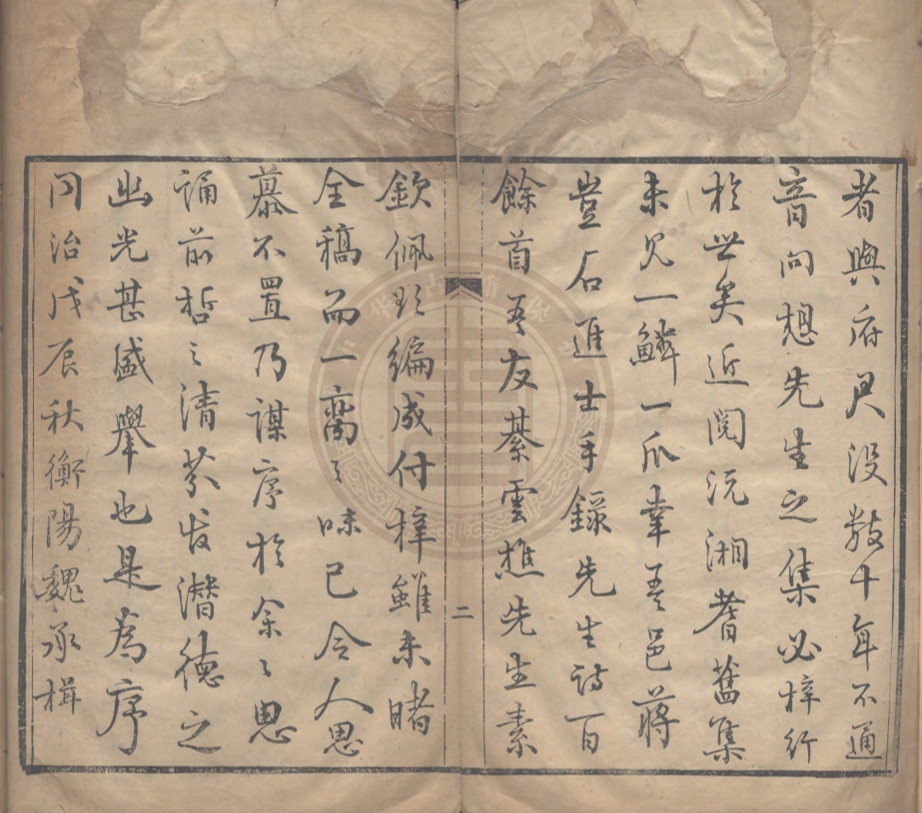 者與府君没數十年不通
音问想先生之集必梓行
於世矣近閲沅湘耆舊集
未見一鱗一爪幸吾邑蔣
豈石進士手錄先生詩百
餘首吾友綦雲樵先生素
欽佩玆編成付梓雖未睹
全稿而一臠之味已令人思
慕不置乃謀序於余〻思
誦前哲之清芬发潛德之
幽光甚盛舉也是為序
同治戊辰秋衡陽魏承楫
二